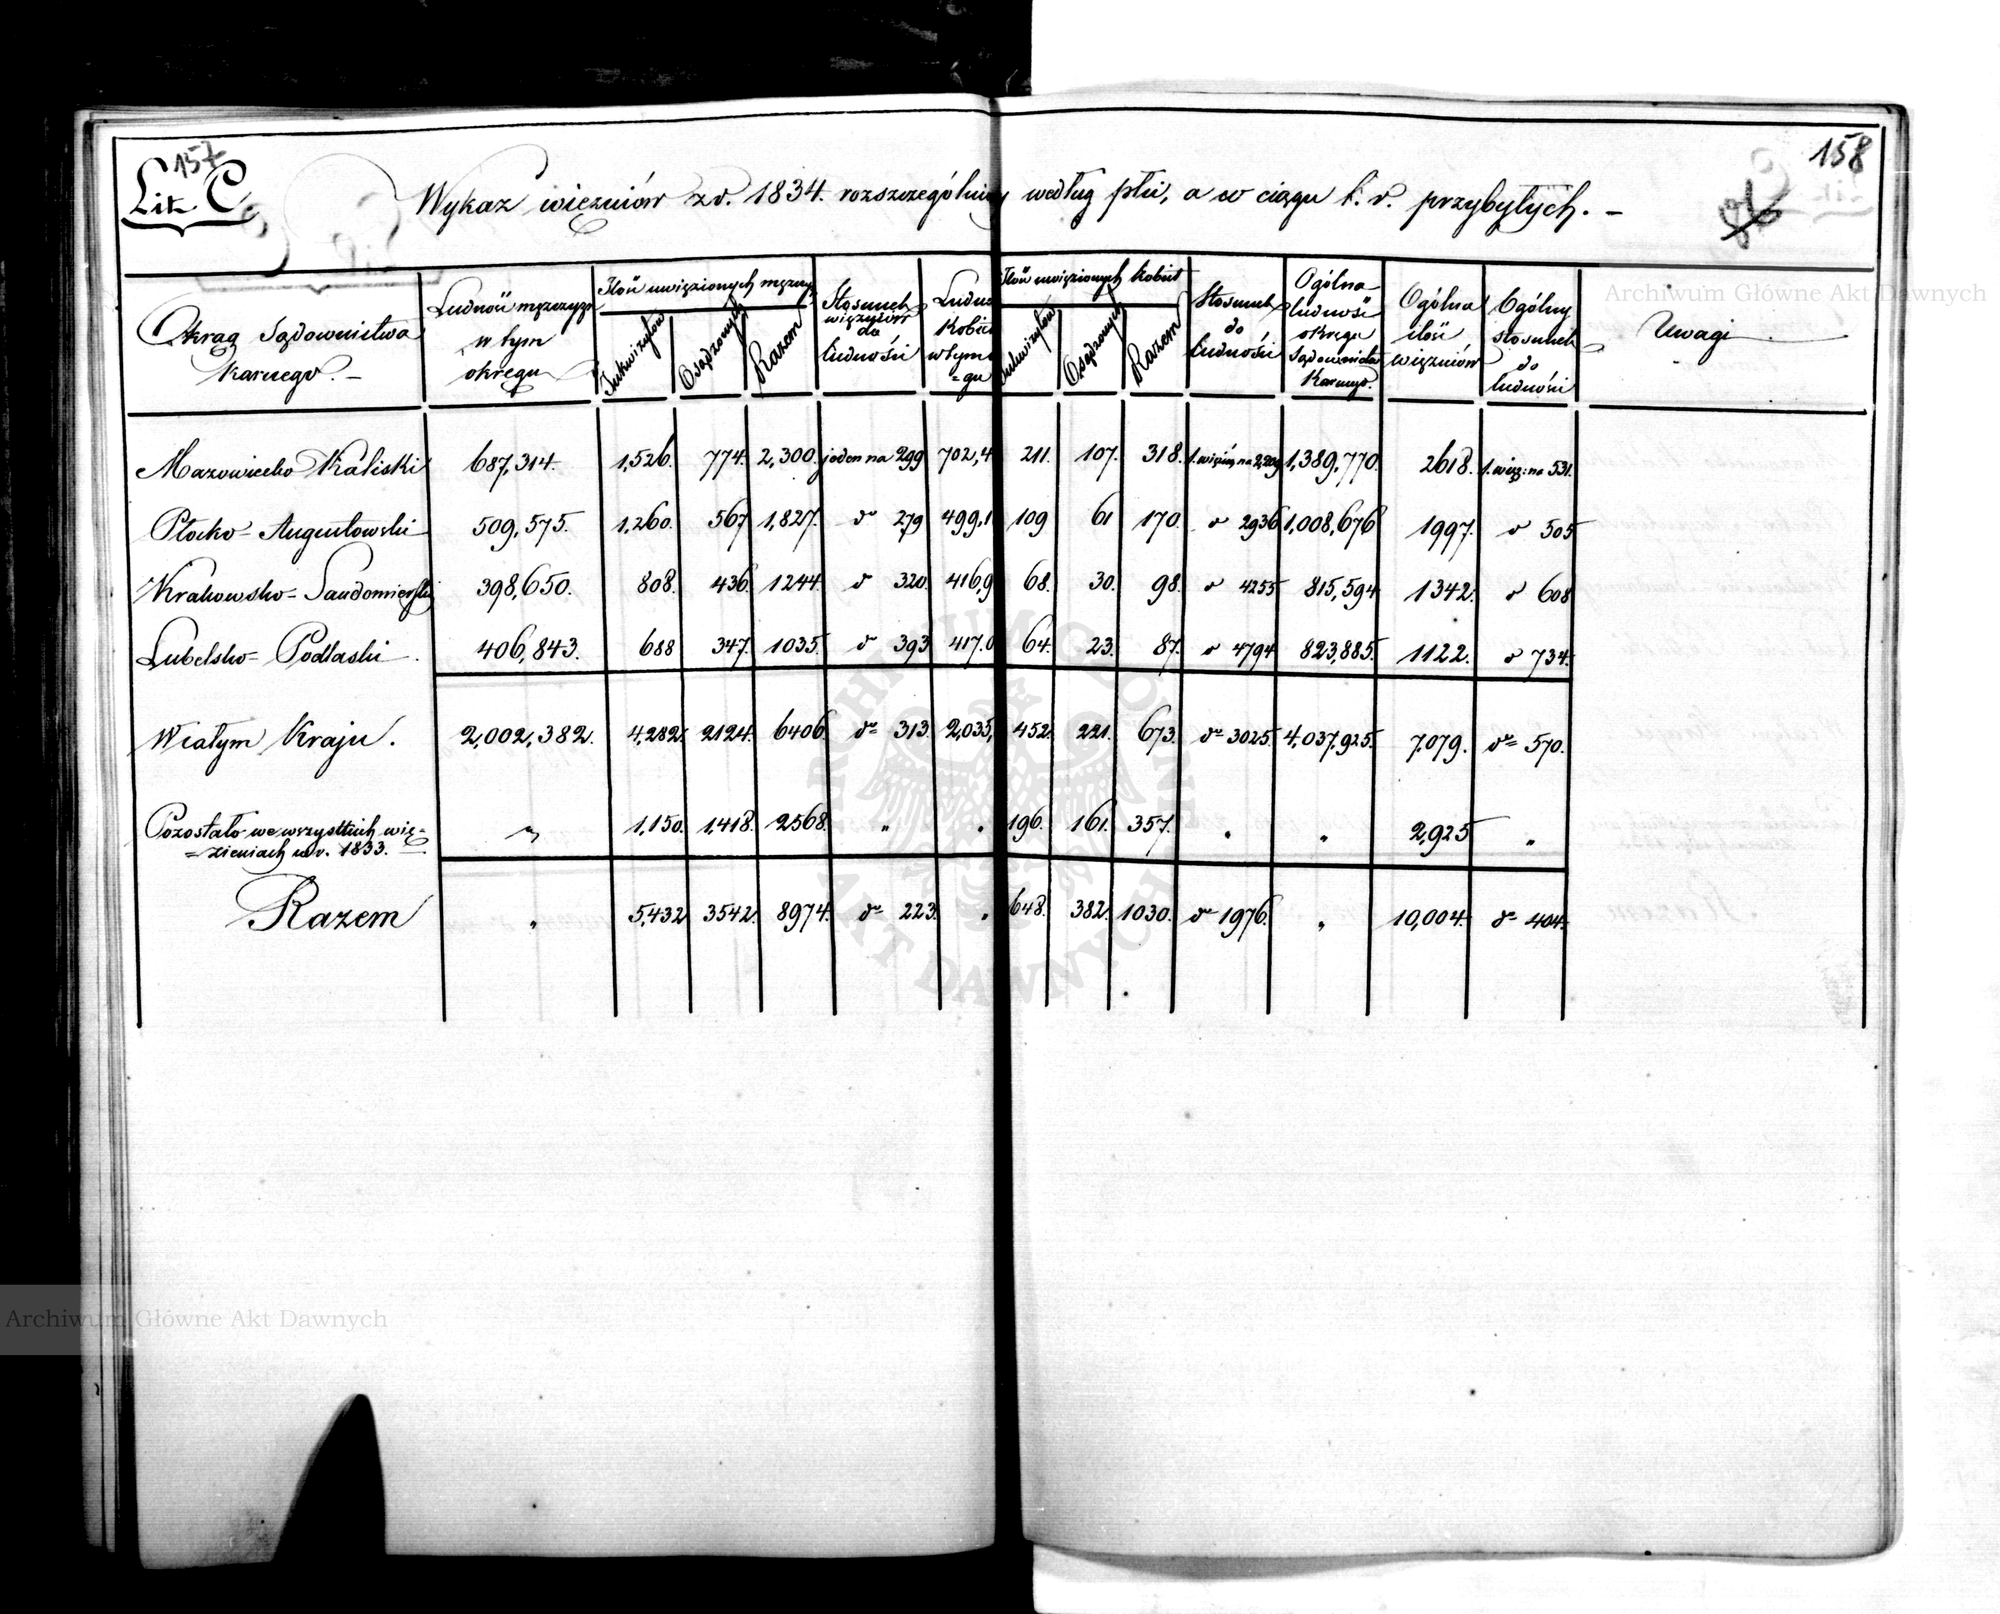 157
158
Lit. C.
Wykaz więzniów z r. 1834. rozszczególniony według płci, a w ciągu t. r. przybyłych. –
Okrąg Sądownictwa Karnego. –
Ludność mężczyzn w tym okręgu
Ilość uwięzionych mężczyzn
Inkwizytów
Osądzonych
Razem
Stosunek więzniów do ludności
Kobiet
Ilość uwięzionych kobiet
Inkwizytów
Osądzonych
Razem
Stosunek do ludności
Ogólna ludność okręgu Sądownictwa Karnego.
Ogólna ilość więzniów
Ogólny stosunek do ludności
Uwagi
Mazowiecko Kaliski 687,314. 1,526. 774. 2,300. jeden na 299 702,4 211. 107. 318. 1. więzień na 2,209 1,389,770. 2618. 1. więz: na 531.
Płocko= Augustowski 509,575. 1,260. 567 1,827. d° 279 499,1 109 61 170. d° 2936 1,008,676 1997. d° 505
Krakowsko= Sandomierski 398,650. 808. 436. 1244. d° 320. 416,9 68. 30. 98. d° 4255 815,594 1342. d° 608
Lubelsko= Podlaski. 406,843. 688 347. 1035. d° 393 417,0 64. 23. 87. d° 4794 823,885. 1122. d° 734.
W całym Kraju. 2,002,382. 4,282. 2124. 6406 d° 313. 2,035, 452. 221. 673. d° 3025. 4,037,925. 7,079. d° 570.
Pozostało we wszystkich wię=
=zieniach w r. 1833. „ 1,150. 1,418. 2568. „ „ 196. 161. 357. „ „ 2,925 „
Razem „ 5,432 3542. 8974. d° 223. „ 648. 382. 1030. d° 1976. „ 10,004. d° 404.
Archiwum Główne Akt Dawnych
Archiwum Główne Akt Dawnych
ARCHIWUM GŁÓWNE AKT DAWNYCH